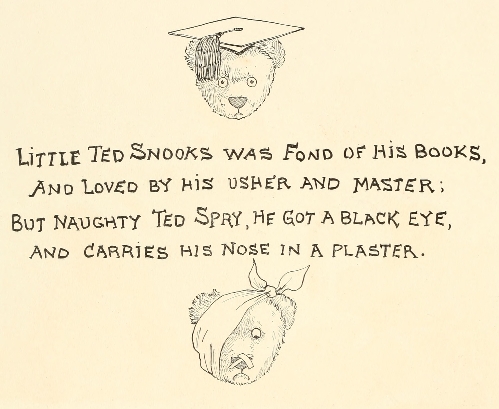 LITTLE TED SNOOKS WAS FOND OF HIS BOOKS,
AND LOVED BY HIS USHER AND MASTER;
BUT NAUGHTY TED SPRY, HE GOT A BLACK EYE,
AND CARRIES HIS NOSE IN A PLASTER.